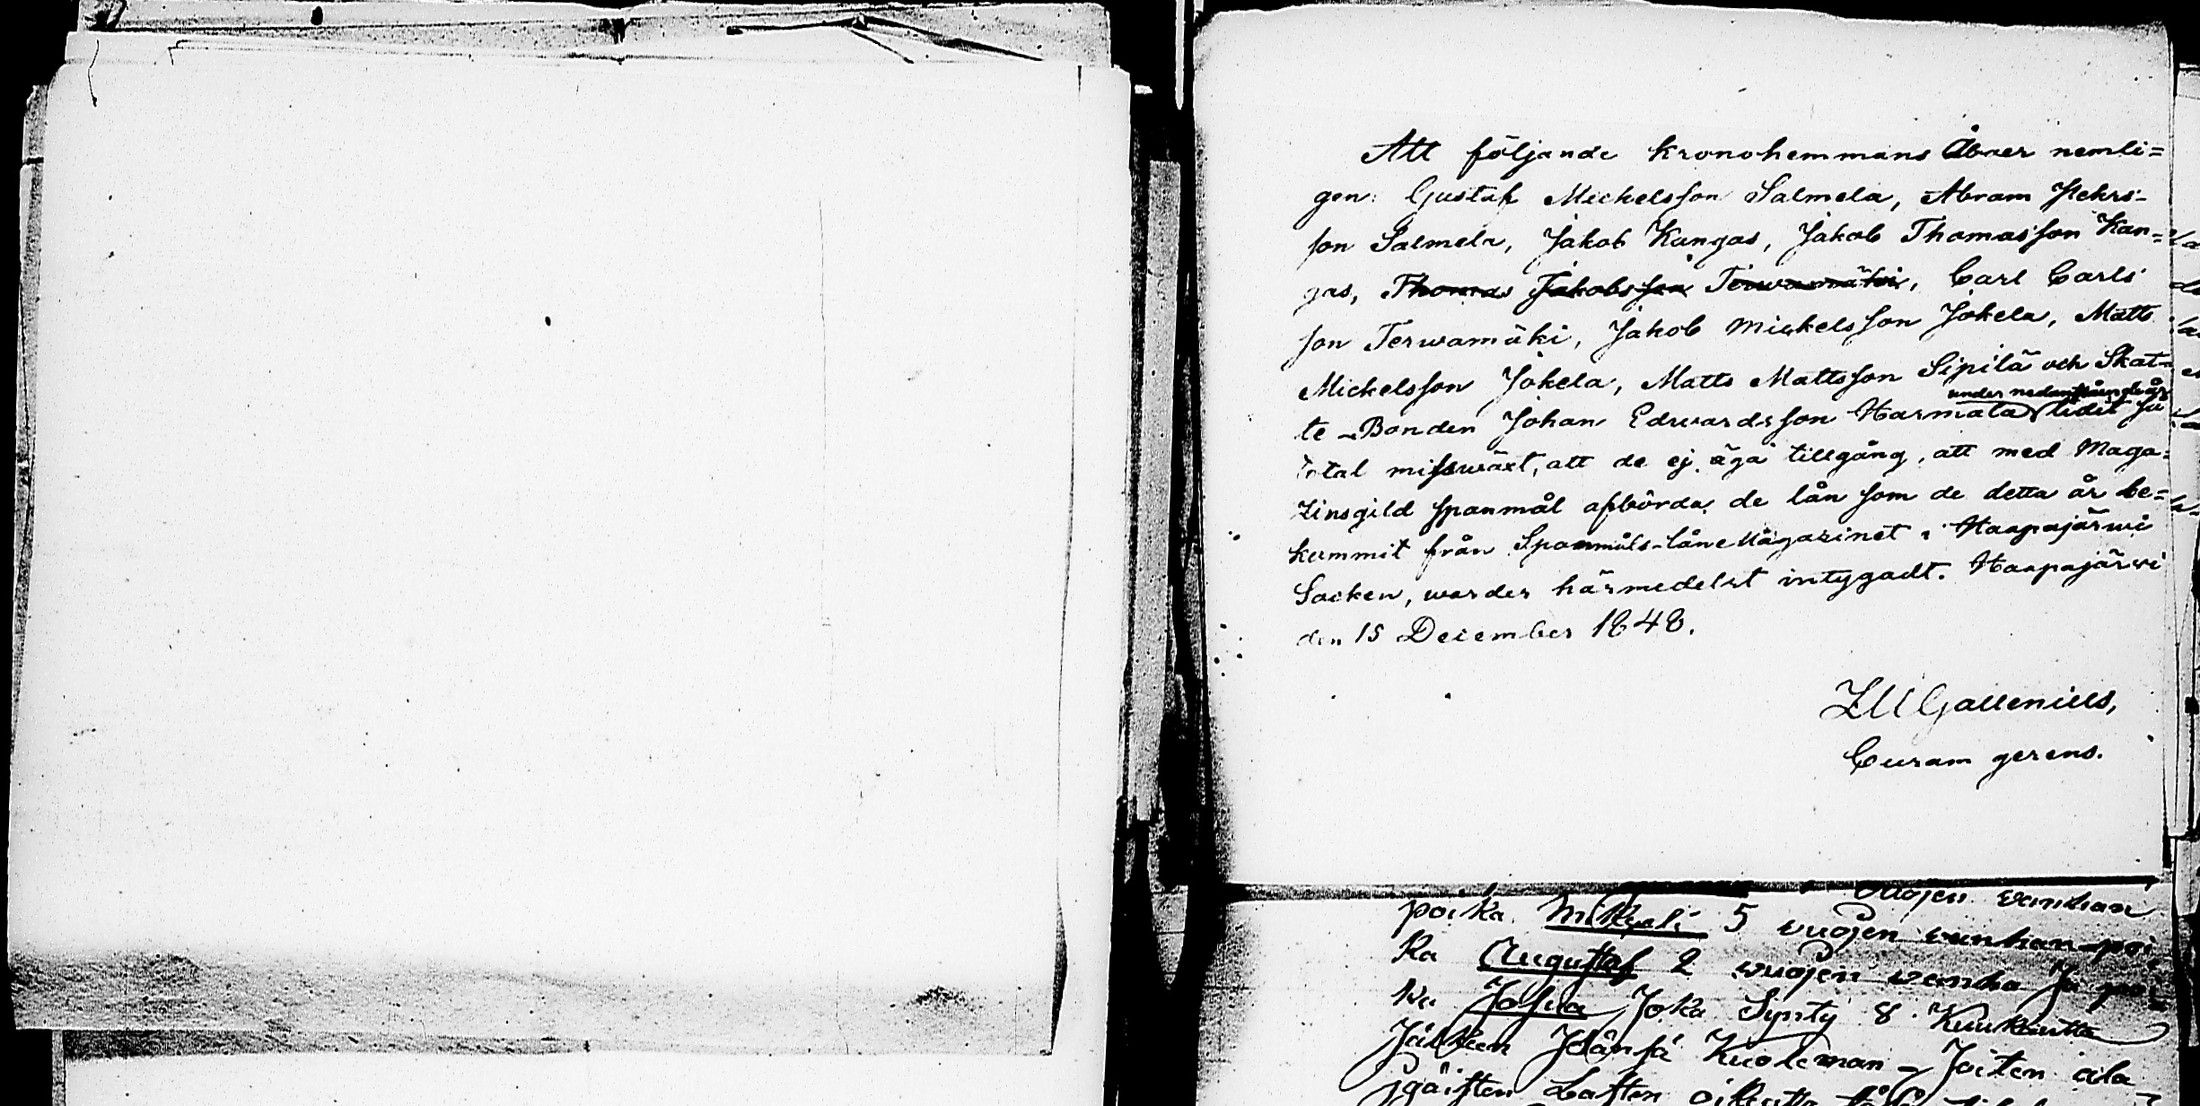 Att följande kronohemmans Åboer nemli=
gen: Gustaf Mickelsson Salmela, Abram Pehrs-
son Salmela, Jakob Kangas, Jakob Thomasson Kan=
gas, Thomas Jakobsson Terwamäki, Carl Carls
son Terwamäki, Jakob Mickelsson Jokela, Matts
Mickelsson Jokela, Matts Mattsson Sipilä och Skat=
under nedanstående år
te-Bonden Johan Edwardsson Harmala lidit så
total missväxt, att de ej äga tillgång, att med Maga=
zinsgild spanmål afbörda de lån som de detta år be=
kummit från Spanmåls-låneMagazinet i Haapajärwi
Socken, warder härmedelst intygadt. Haapajärwi
den 15 December 1848.
Z M Gallenius,
Curam gerens.
vuojen vanhan
poika Mikkeli 5 vuojen vanhan poi
ka Augustaf 2 vuojen vanha Ja poi
ka Josua Joka Synty 8 Kuukautta
Jälken Isänsä Kuoleman - Joiten ala